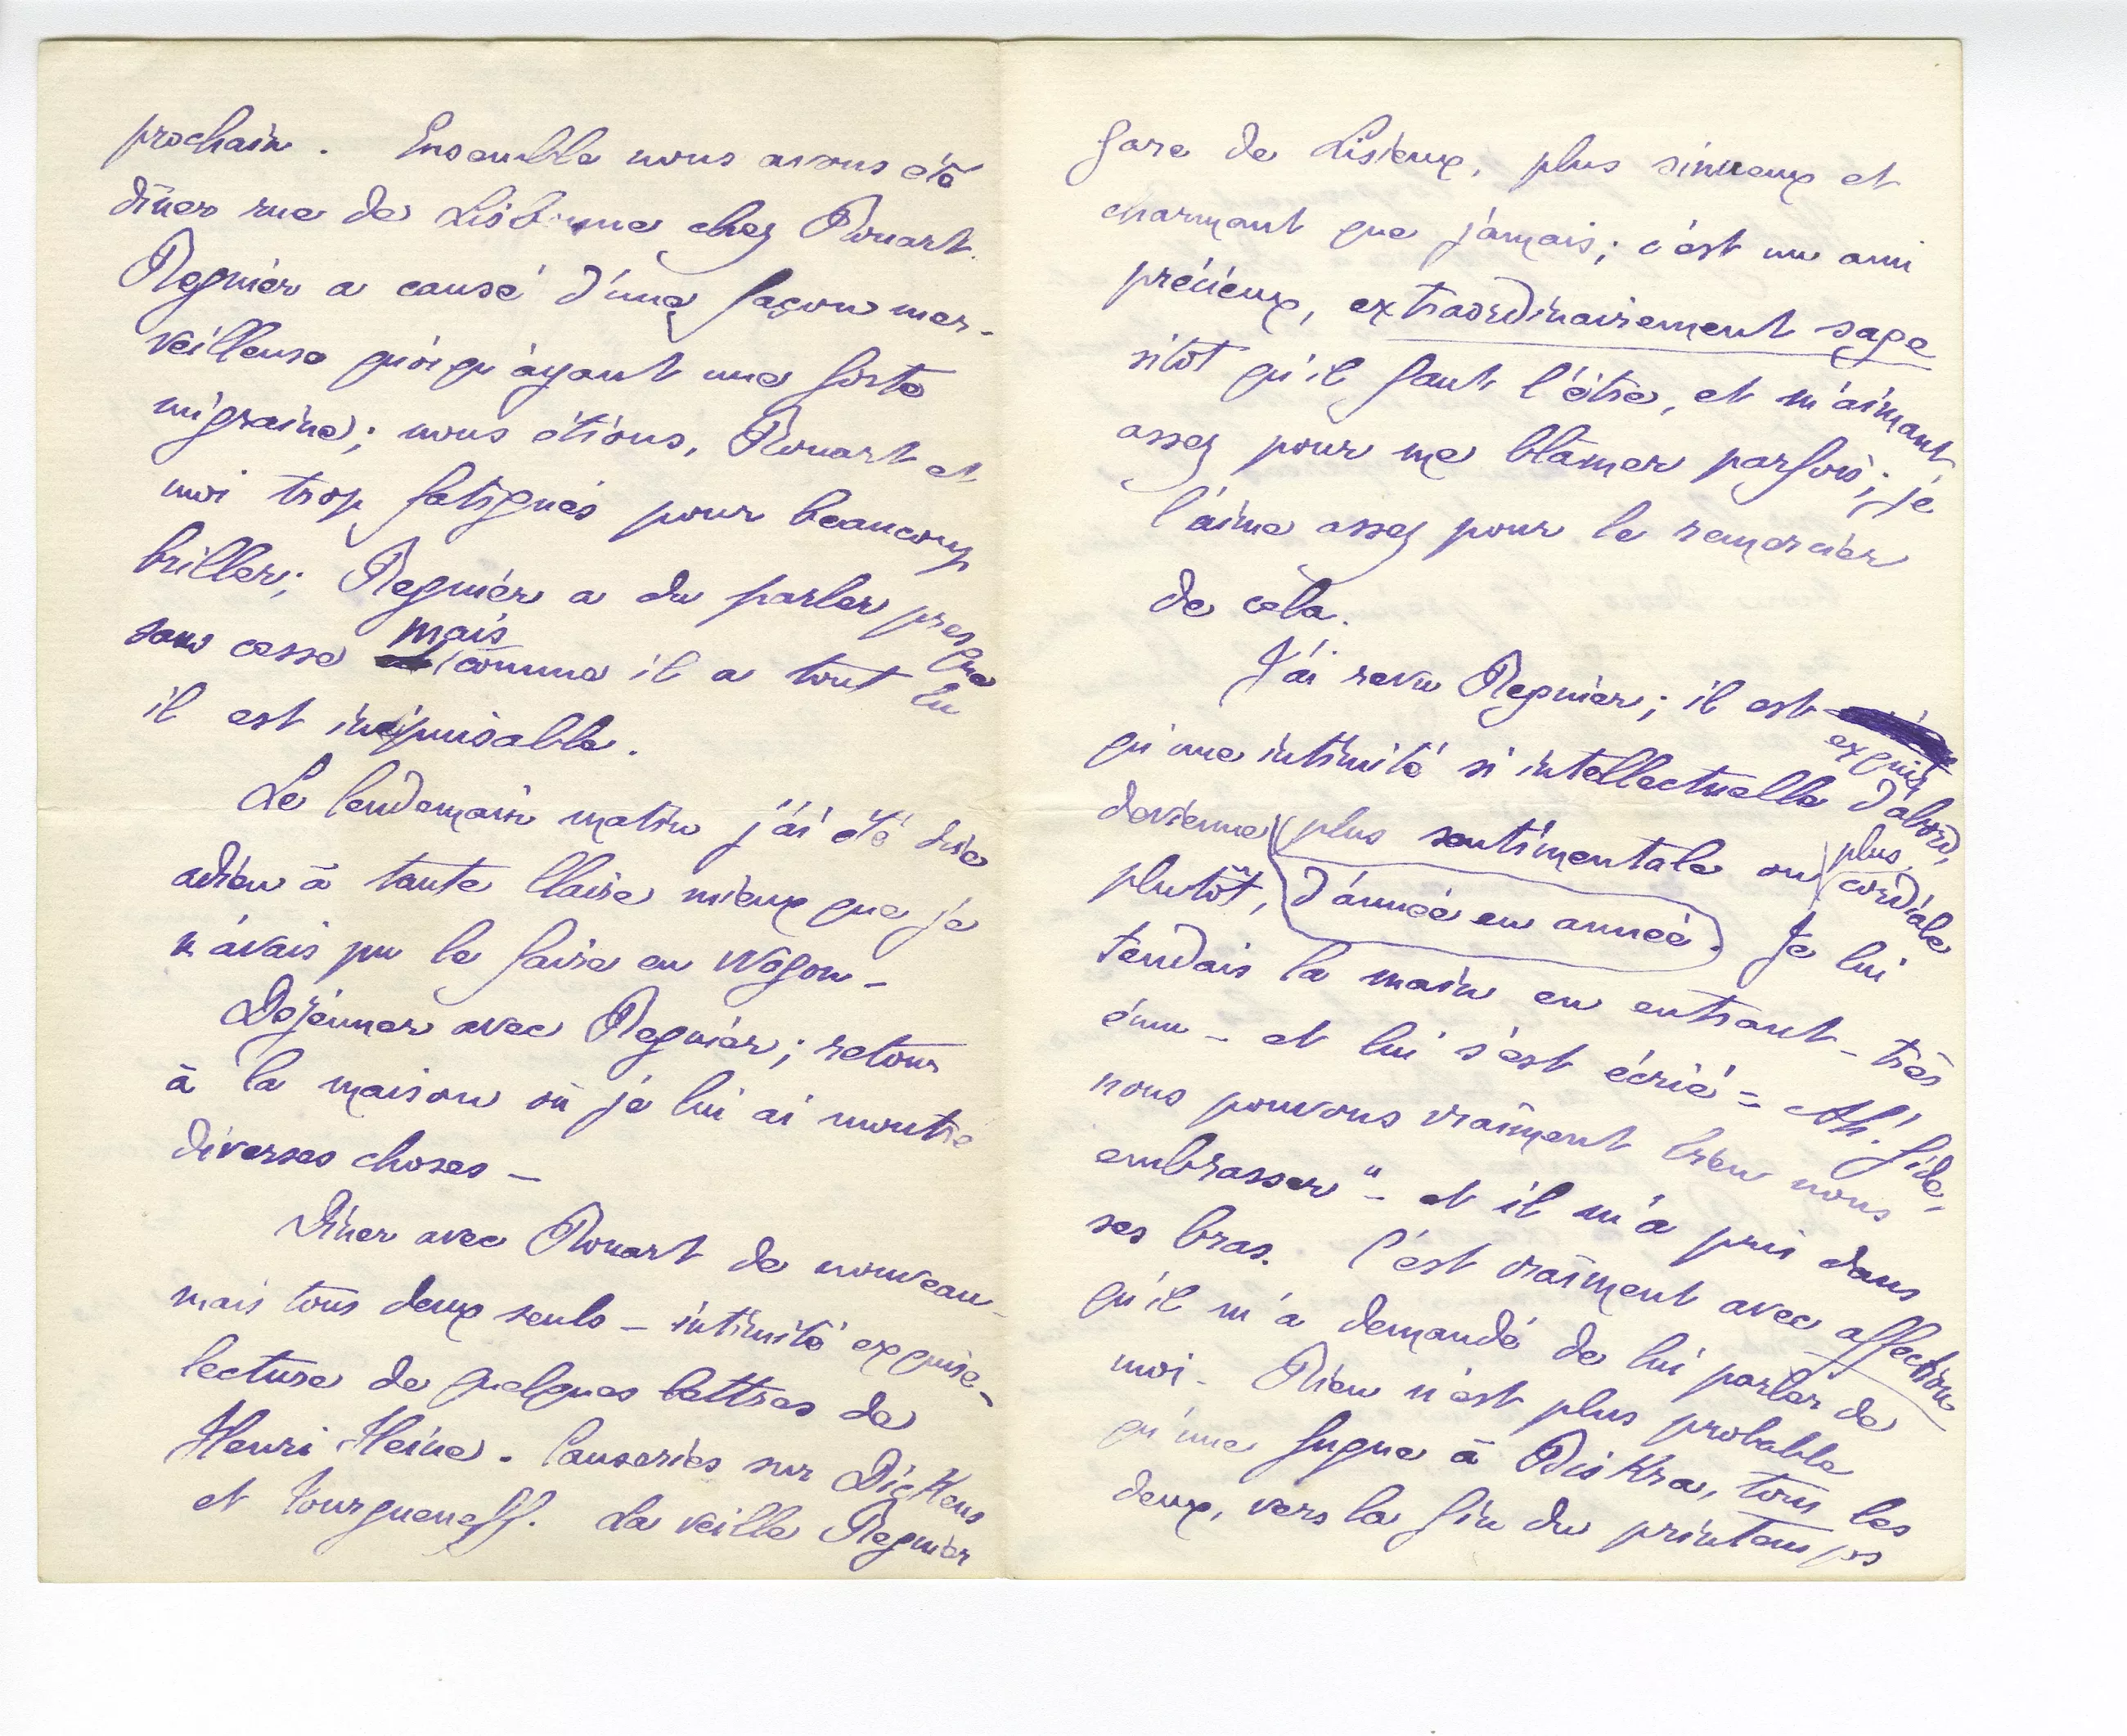 prochain. Ensemble nous avons été
dîner rue de Lisbonne chez Rouart.
Regnier a causé d'une façon mer-
veilleuse quoiqu'ayant une forte
migraine; nous étions, Rouart et
moi trop fatigués pour beaucoup
briller; Regnier a du parler presque
sans cesse mais comme il a tout lu
il est inépuisable.
Le lendemain matin j'ai été dire
adieu à tante Claire mieux que je
n'avais pu le faire en wagon –
Dejeuner avec Regnier; retour
à la maison où je lui ai montré
diverses choses –
Diner avec Rouart de nouveau –
mais tous deux seuls – intimité exquise –
lecture de quelques lettres de
Henri Heine. Causeries sur Dickens
et Tourgueneff. La veille Regnier
gare de Lisieux, plus sinueux et
charmant que jamais; c'est un ami
précieux, extraordinairement sage
sitôt qu'il faut l'être, et m'aimant
assez pour me blâmer parfois; je
l'aime assez pour le remercier
de cela.
J'ai revu Regnier; il est
exquis
qu'une intimité si intellectuelle d'abord,
devienne plus sentimentale ou plus cordiale
plutôt, d'année en année. Je lui
tendais la main en entrant – très
ému – et lui s'est écrié = Ah! Gide,
nous pouvons vraiment bien nous
embrasser" – et il m'a pris dans
ses bras. C'est vraiment avec affection
qu'il m'a demandé de lui parler de
moi – Rien n'est plus probable
qu'une fugue à Biskra, tous les
deux, vers la fin du printemps